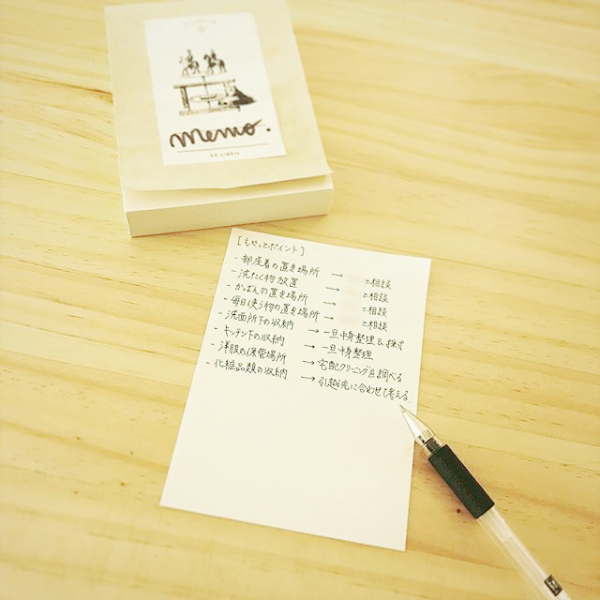 memo.
EX LIBRIS
[もやっとポイント]
- 部屋着の置き場所 → に相談
- 洗たく物放置 → に相談
- かばんの置き場所 → に相談
- 毎日使う物の置き場所 → に相談
- 洗面所下の収納 → 一旦中身整理&探す
- キッチン下の収納 → 一旦中身整理
- 洋服の保管場所 → 宅配クリーニングを調べる
- 化粧品類の収納 → 引越先に合わせて考える。